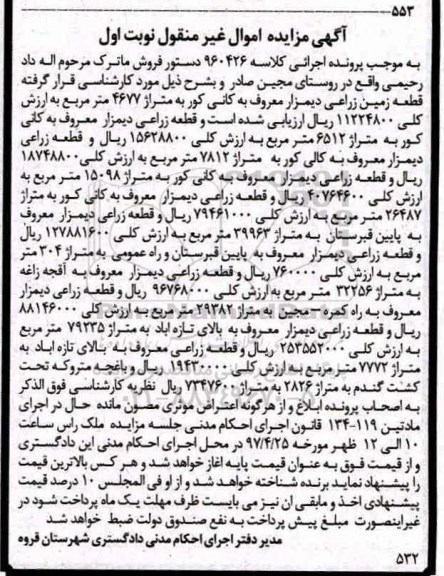 ۵۵۳
آگهی مزایده اموال غیر منقول نوبت اول
به موجب پرونده اجرائی کلاسه ۹۶۰۴۲۶ دستور فروش ماترک مرحوم اله داد
رحیمی واقع در روستای مجین صادر و بشرح ذیل مورد کارشناسی قرار گرفته
قطعه زمین زراعی دیمزار معروف به کانی کور به متراژ ۴۶۷۷ متر مربع به ارزش
کلی ۱۱۲۲۴۸۰۰ ریال ارزیابی شده است و قطعه زراعی دیمزار معروف به کانی
کور به متراژ ۶۵۱۲ متر مربع به ارزش کلی ۱۵۶۲۸۸۰۰ ریال و قطعه زراعی
دیمزار معروف به کالی کور به متراژ ۷۸۱۲ متر مربع به ارزش کلی ۱۸۷۴۸۸۰۰
ریال و قطعه زراعی دیمزار معروف به کانی کور به متراژ ۱۵۰۹۸ متر مربع به
ارزش کلی ۴۰۷۶۴۶۰۰ ریال و قطعه زراعی دیمزار معروف به کانی کور به متراژ
۲۶۴۸۷ متر مربع به ارزش کلی ۷۹۴۶۱۰۰۰ ریال و قطعه زراعی دیمزار معروف
به پایین قبرستان به متراژ ۳۹۹۶۳ متر مربع به ارزش کلی ۱۲۷۸۸۱۶۰۰ ریال
و قطعه زراعی دیمزار معروف به پایین قبرستان و راه عمومی به متراژ ۳۰۴ متر
مربع به ارزش کلی ۷۶۰۰۰۰ ریال و قطعه زراعی دیمزار معروف به آقجه زاغه
به متراژ ۳۲۲۵۶ متر مربع به ارزش کلی ۹۶۷۶۸۰۰۰ ریال و قطعه زراعی دیمزار
معروف به راه کمره - مجین به متراژ ۲۹۳۸۲ متر مربع به ارزش کلی ۸۸۱۴۶۰۰۰
ریال و قطعه زراعی دیمزار معروف به بالای تازه اباد به متراژ ۷۹۲۳۵ متر مربع
به ارزش کلی ۲۵۳۵۵۲۰۰۰ ریال و قطعه زراعی معروف به بالای تازه اباد به
متراژ ۷۷۷۲ متر مربع به ارزش کلی ۱۹۴۳۰۰۰۰ ریال و باغچه متروکه تحت
کشت گندم به متراژ ۲۸۲۶ به متراژ ۷۳۴۷۶۰۰ ریال نظریه کارشناسی فوق الذکر
به اصحاب پرونده ابلاغ و از هرگونه اعتراض موثری مصون مانده حال در اجرای
مادتین ۱۱۹-۱۳۴ قانون اجرای احکام مدنی جلسه مزایده ملک راس ساعت
۱۰ الی ۱۲ ظهر مورخه ۹۷/۴/۲۵ در محل اجرای احکام مدنی این دادگستری
و از قیمت فوق به عنوان قیمت پایه اغاز خواهد شد و هر کس بالاترین قیمت
را پیشنهاد نماید برنده شناخته خواهد شد و از او فی المجلس ۱۰ درصد قیمت
پیشنهادی اخذ و مابقی ان نیز می بایست ظرف مهلت یک ماه پرداخت شود در
غیراینصورت مبلغ پیش پرداخت به نفع صندوق دولت ضبط خواهد شد
مدیر دفتر اجرای احکام مدنی دادگستری شهرستان قروه
۵۳۲